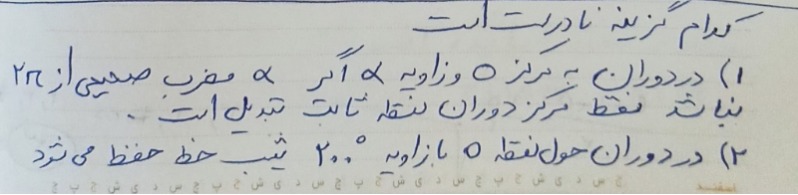 کدام گزینه نادرست است
۱) در دوران به مرکز O و زاویه α اگر α مضرب صحیحی از ۲π
نباشد فقط مرکز دوران نقطه ثابت تبدیل است .
۲) در دوران حول نقطه O با زاویه ۲۰۰° شیب خط حفظ می شود
اسفند